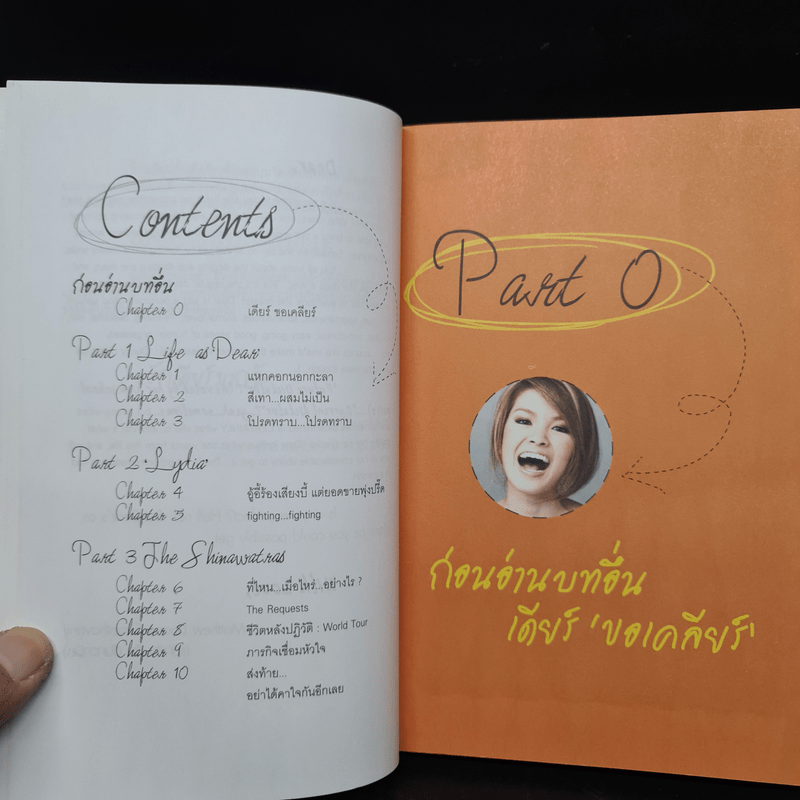 Contents
ก่อนอ่านบทอื่น
Chapter 0 เดียร์ ขอเคลียร์
Part 1 Life as Dear
Chapter 1 แหกคอกนอกกะลา
Chapter 2 สีเทา...ผสมไม่เป็น
Chapter 3 โปรดทราบ...โปรดทราบ
Part 2 Lydia
Chapter 4 อู้อี้ร้องเสียงบี้ แต่ยอดขายพุ่งปรี๊ด
Chapter 5 fighting...fighting
Part 3 The Shinawatras
Chapter 6 ที่ไหน...เมื่อไหร่...อย่างไร ?
Chapter 7 The Requests
Chapter 8 ชีวิตหลังปฏิวัติ : World Tour
Chapter 9 ภารกิจเชื่อมหัวใจ
Chapter 10 ส่งท้าย...
อย่าได้คาใจกันอีกเลย
Part 0
ก่อนอ่านบทอื่น
เดียร์ 'ขอเคลียร์'